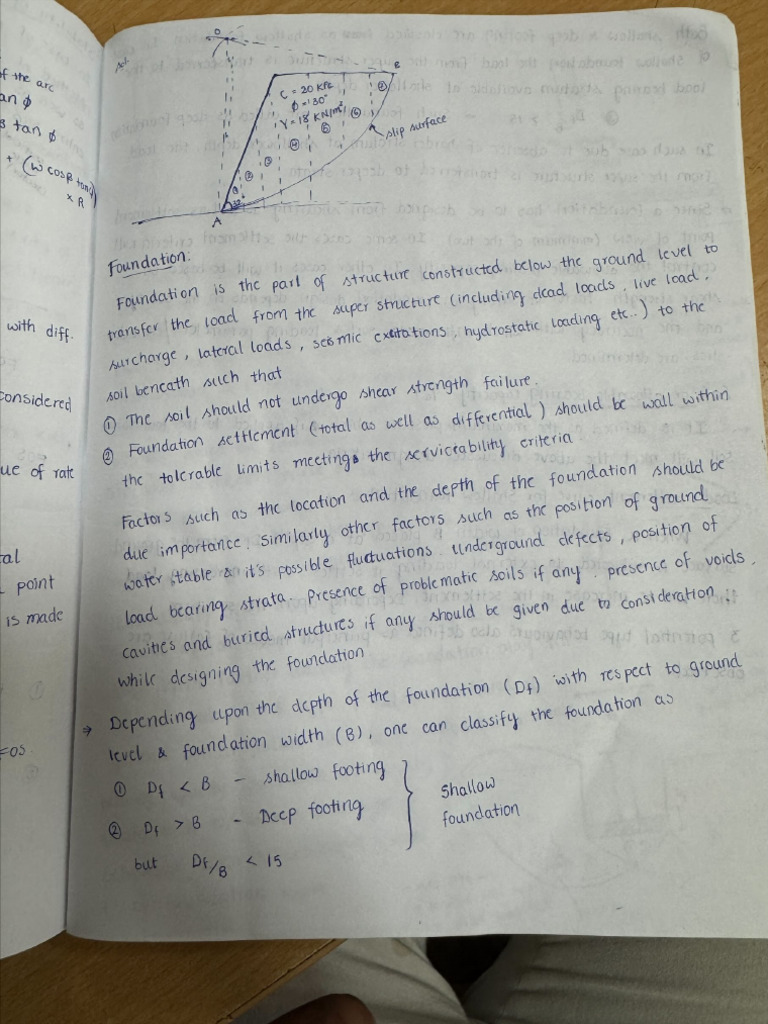 of the arc
an φ
B tan φ
+ (W cosβ tanφ)
× R
with diff.
considered
ue of rate
tal
point
is made
FOS
Sol
O
B
C = 20 KPa
φ = 30°
γ = 18 KN/m³
slip surface
① ② ③ ④ ⑤ ⑥ ⑦
A
Foundation:
Foundation is the part of structure constructed below the ground level to
transfer the load from the super structure (including dead loads, live load,
surcharge, lateral loads, seismic excitations, hydrostatic loading etc..) to the
soil beneath such that
① The soil should not undergo shear strength failure.
② Foundation settlement (total as well as differential) should be wall within
the tolerable limits meeting the serviceability criteria
Factors such as the location and the depth of the foundation should be
due importance. Similarly other factors such as the position of ground
water table & it's possible fluctuations. underground defects, position of
load bearing strata. Presence of problematic soils if any. presence of voids,
cavities and buried structures if any should be given due to consideration
while designing the foundation
→ Depending upon the depth of the foundation (Df) with respect to ground
level & foundation width (B), one can classify the foundation as
① Df < B - shallow footing
② Df > B - Deep footing
but Df/B < 15
Shallow
foundation